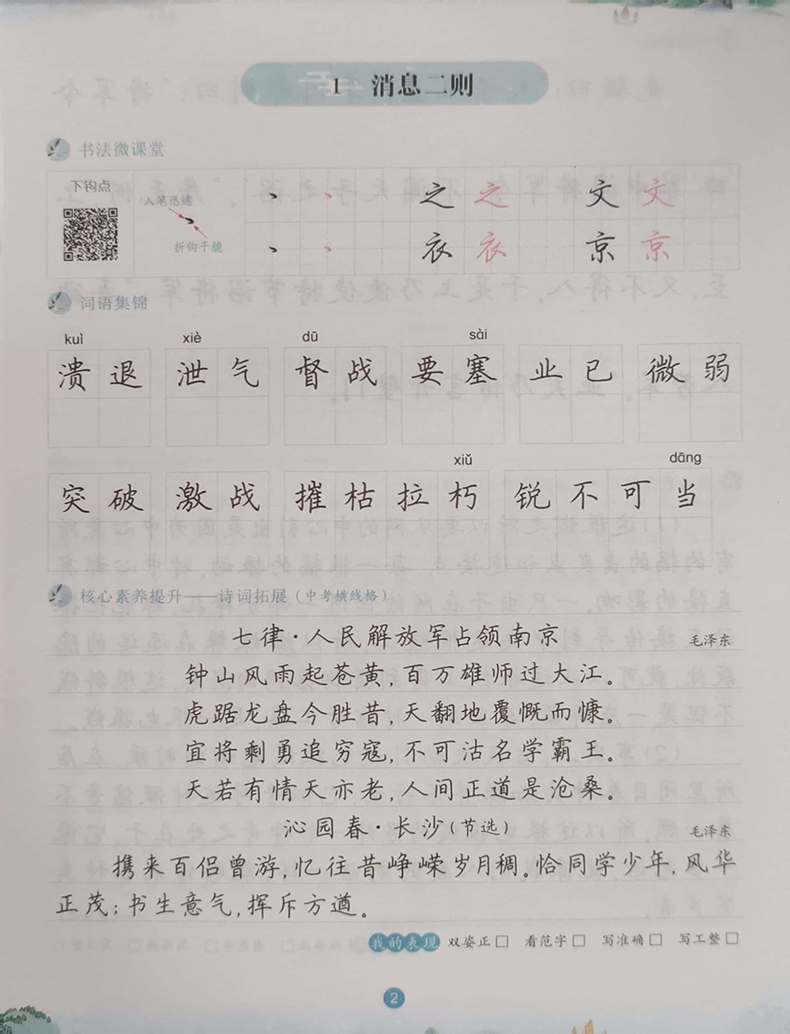 1 消息二则
书法微课堂
下钩点
入笔迅速
折钩干脆
丶 丶 之 之 文 文
丶 丶 衣 衣 京 京
词语集锦
kuì xiè dū sài
溃退 泄气 督战 要塞 业已 微弱
xiǔ dāng
突破 激战 摧枯拉朽 锐不可当
核心素养提升——诗词拓展(中考横线格)
七律·人民解放军占领南京 毛泽东
钟山风雨起苍黄,百万雄师过大江。
虎踞龙盘今胜昔,天翻地覆慨而慷。
宜将剩勇追穷寇,不可沽名学霸王。
天若有情天亦老,人间正道是沧桑。
沁园春·长沙(节选) 毛泽东
携来百侣曾游,忆往昔峥嵘岁月稠。恰同学少年,风华
正茂;书生意气,挥斥方遒。
我的表现 双姿正□ 看范字□ 写准确□ 写工整□
2